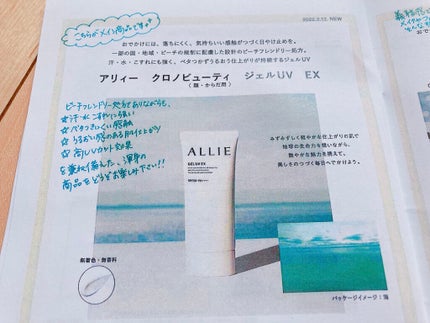 こちらがメイン商品です
2022.2.12. NEW
おでかけには、落ちにくく、気持ちいい感触がつづく日やけ止めを。
一部の国・地域・ビーチの規制に配慮した設計のビーチフレンドリー処方。
汗・水・こすれにも強く、ベタつかずうるおう仕上がりが持続するジェルUV
アリィー クロノビューティ ジェルUV EX
（顔・からだ用）
ビーチフレンドリー処方でありながらも、
☆汗・水・こすれに強い
☆ベタつきにくい感触
☆うるおい感のある仕上がり
☆高UVカット効果
を兼ね備えた、渾身の
商品をどうぞお楽しみ下さい!!
みずみずしく軽やかな仕上がりの肌で
地球の生命力を纏いながら、
艶やかな魅力を携えて。
美しさのつづく毎日へでかけよう。
ALLIE
GEL UV EX
SPF50+ PA++++
無着色・無香料
パッケージイメージ：海